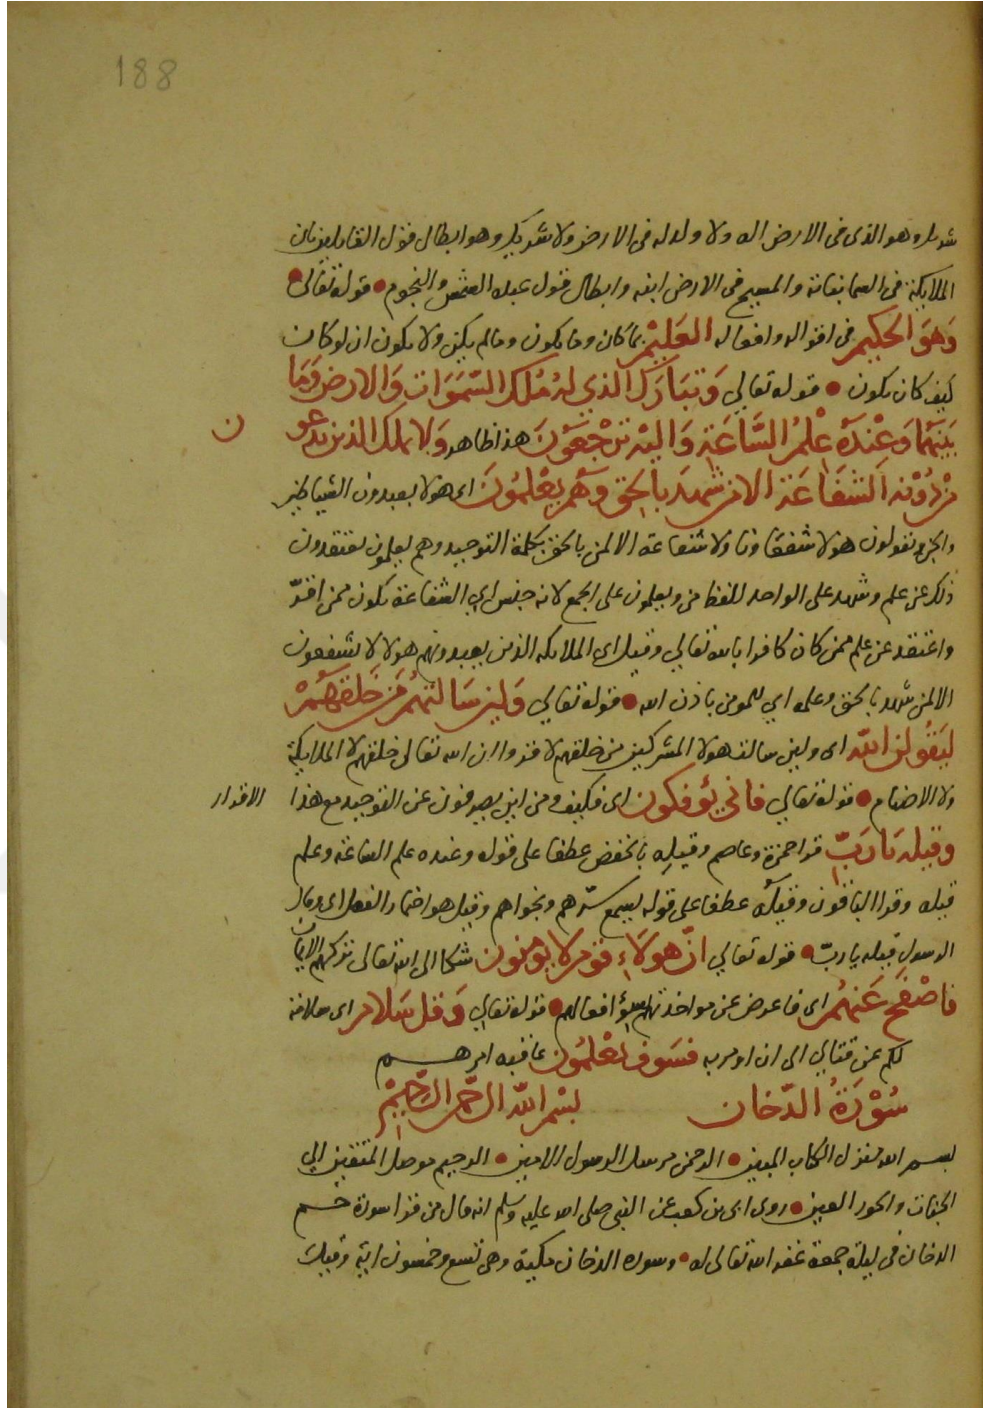 188
شريك وهو الذي في الارض اله ولا ولد له في الارض ولا شريك وهو ابطال قول القايلين بان
الملايكة في السما بناته والمسيح في الارض ابنه وابطال قول عبدة الشمس والنجوم • قوله تعالى
وَهوَ الحكيم في اقواله وافعاله العَليْم بما كان وما يكون وما لم يكن ولا يكون ان لو كان
كيف كان يكون • قوله تعالي وَتبَارَك الذي لهُ مُلك السَّمَوَات وَالارض وَمَا
بَينَهُمَا وَعِنْدَهُ عِلْمُ السَّاعَةِ وَاليْهِ ترْجَعُوْنَ هذا ظاهر وَلا يملك الذين يدعو
ن
مِنْ دُوْنه الشفَاعَة الا من شهدَ بالحق وَهُمْ يَعْلمُونَ اى هولا يعبدون الشياطين
والجن ويقولون هولا شفعاونا ولا شفاعة الا لمن بالحق بكلمة التوحيد وهم يعلمون يعتقدون
ذلك عن علم وشهد على الواحد للفظ من ويعلمون على الجمع لانه جنس اي الشفاعة تكون ممن اقرّ
واعتقد عن علم ممن كان كافرا بالله تعالي وقيل اى الملايكه الذين يعبدونهم هولا لا يشفعون
الا لمن شهد بالحق وعلمه اي للمومن باذن الله • قوله تعالي وَلين سَالتهُمْ مَّن خَلقهُمْ
ليَقُولن الله اى ولين سالت هولا المشركين من خلقهم لاقروا ان الله تعالى خلقهم لا الملايكة
ولا الاصنام • قوله تعالي فاني يؤفكون اى فكيف ومن اين يصرفون عن التوحيد مع هذا
الاقرار
وقيله يَا رَبّ قرا حمزة وعاصم وقيلِهِ بالخفض عطفا على قوله وعنده علم الساعة وعلم
قيله وقرا الباقون وقيلَه عطفا على قوله يسمع سرّهم ونجواهم وقيل هو اضمار الفعل اى وقال
الرسول قيله يا ربّ • قوله تعالي انّ هولاءِ قوم لا يومنون شكا الى الله تعالى تركهم الايمان
فاصْفحْ عَنهُمْ اى فاعرض عن مواخذتهم بسوء افعالهم • قوله تعالي وَقل سَلام اى سلامة
لكم عن قتالي الى ان اومر به فسَوف تعْلمُون عاقبة امرهم
سُوْرَةُ الدّخان بسْم الله الرّحمٰن الرّحِيمْ
بسم الله منزل الكتاب المبين • الرحمن مرسل الرسول الامين • الرحيم موصل المتقين الي
الجنات والحور العين • روى ابى بن كعب عن النبي صلى الله عليه وسلم انه قال من قرا سورة حم
الدخان في ليلة جمعة غفر الله تعالى له • وسورة الدخان مكية وهي تسع وخمسون اية وقيل